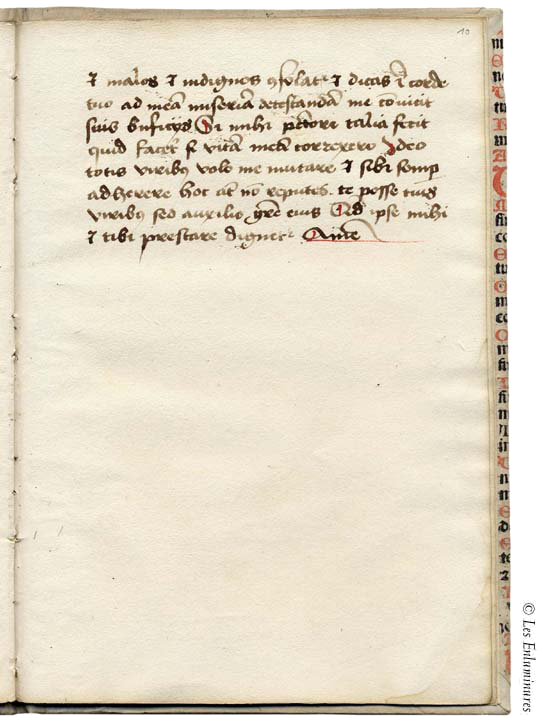 10
⁊ malos ⁊ indignos ꝯsolat᷑ ⁊ dicas ī corde
tuo ad meā miseriā detestandā me cōuicit
suis b̄ficijs Si mihi pctōri talia fecit
quid facet si vitā meā correxero Ideo
totis viribꝰ volo me mutare ⁊ sibi semp
adherere hoc at̄ nō reputes te posse tuis
viribꝰ sed auxilio gr̄e eius Qd̄ ipse mihi
⁊ tibi prestare dignet᷑ Amē
© Les Enluminures